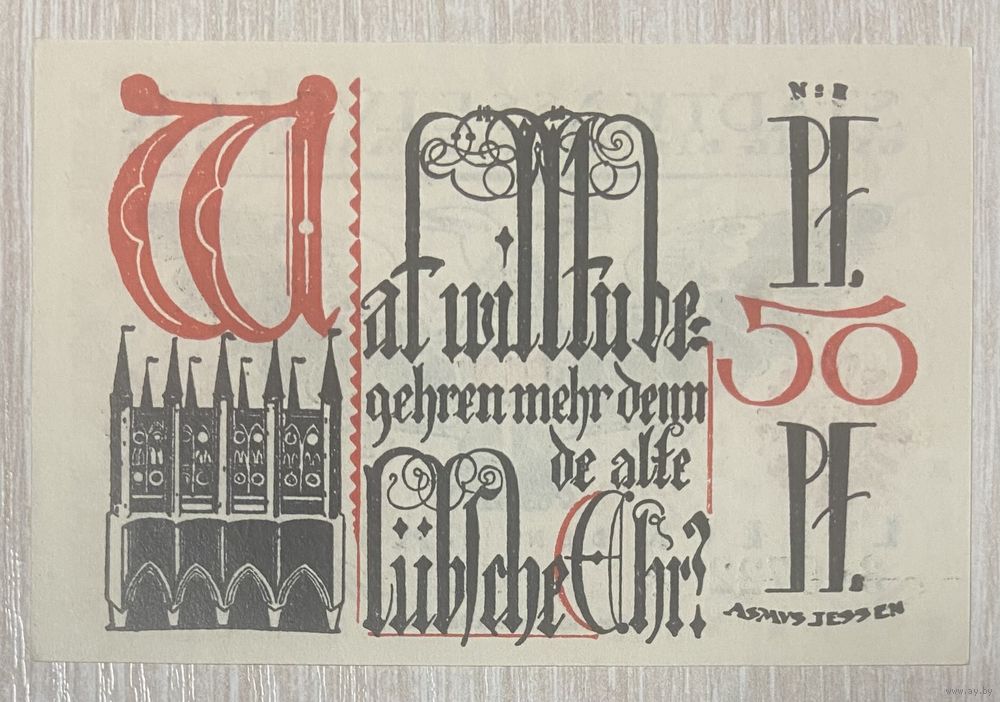 Wat willtu be-
gehren mehr denn
de alte
lübsche Ehr?
Pf.
50
Pf.
ASMVS JESSEN
www.ay.by